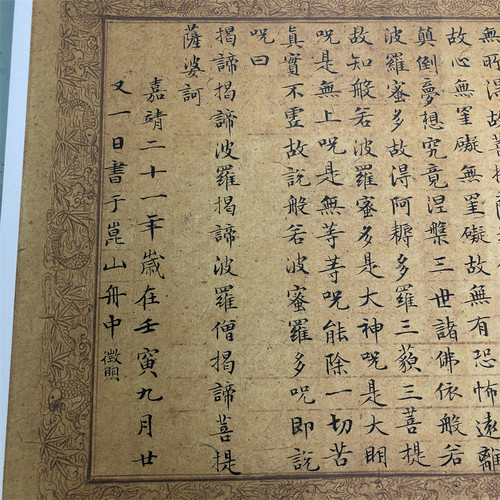 無所得故菩提
故心無罣礙無罣礙故無有恐怖遠離
顛倒夢想究竟涅槃三世諸佛依般若
波羅蜜多故得阿耨多羅三藐三菩提
故知般若波羅蜜多是大神咒是大明
咒是無上咒是無等等咒能除一切苦
真實不虛故說般若波蜜羅多咒即說
咒曰
揭諦揭諦波羅揭諦波羅僧揭諦菩提
薩婆訶
嘉靖二十一年歲在壬寅九月廿
又一日書于崑山舟中 徵明